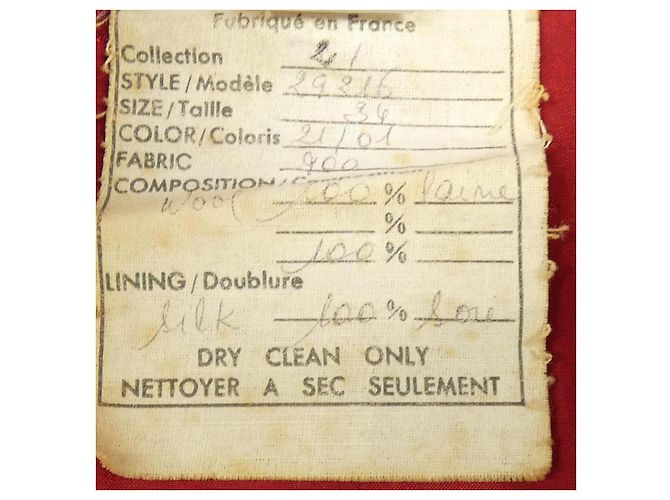 Fabriqué en France
Collection 21
STYLE/Modèle 29216
SIZE/Taille 34
COLOR/Coloris 21/01
FABRIC 900
COMPOSITION/
Wool 100 % laine
%
100 %
LINING/Doublure
silk 100 % soie
DRY CLEAN ONLY
NETTOYER A SEC SEULEMENT